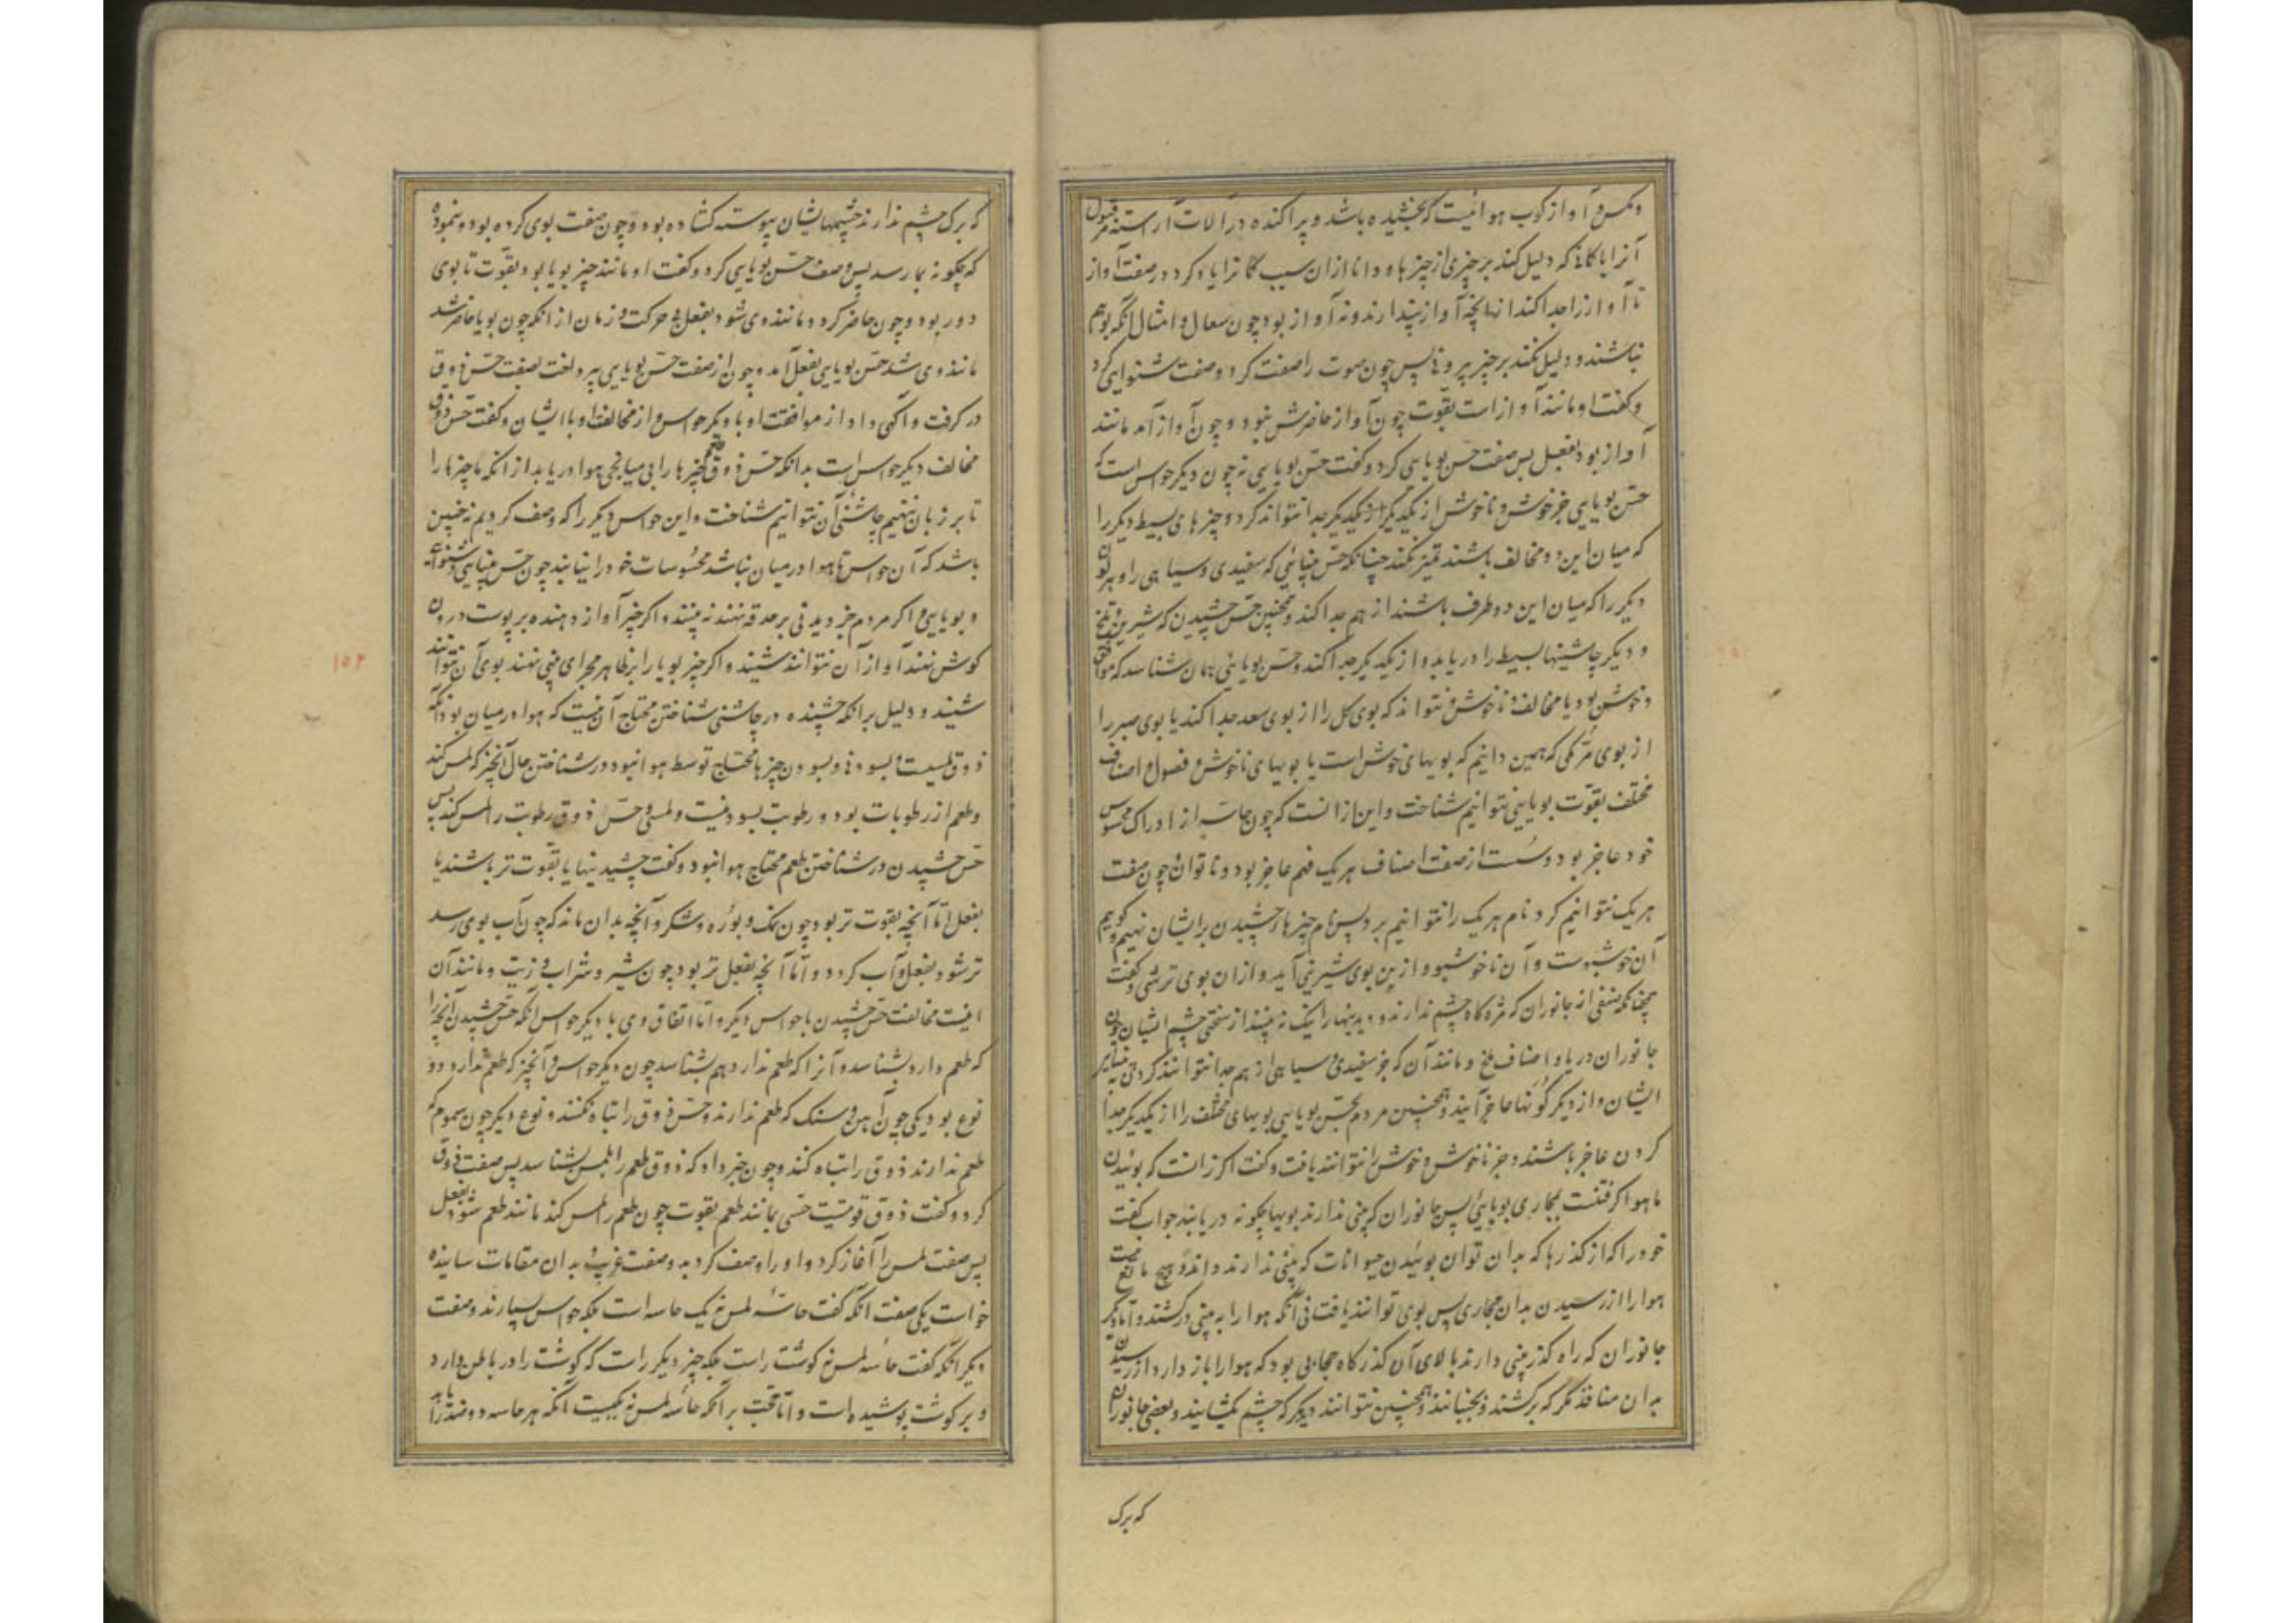 و نگس و آواز کوب هوائیست که بخشیده باشد و پراکنده در آلات آراسته مر قبول
آنرا با گاناکه دلیل کند بر چیزی از چیزها و دانا ازان سبب گانرا یاد کرد در صفت آواز
تا آواز را جدا کند از نهایچه آواز پندارند و نه آواز بود چون سعال و امثال آنکه بوهم
نباشند و دلیل نکند بر چیز بیرونها پس چون صوت را صفت کرد و صفت شنوایی کرد
و گفت او مانند آواز است بقوّت چون آواز حاضرش نبود و چون آواز آمد مانند
آواز بود بفعل پس صفت حسّ بویایی کرد و گفت حسّ بویایی نه چون دیگر حواس است که
حسّ بویایی جز خوش و ناخوش از یکدیگر جدا نتواند کرد و چیزهای بسیط دیگر را
که میان این دو مخالف باشند تمیز نکند چنانکه حسّ بینائی که سفیدی و سیاهی را و هر لون
دیگر را که میان این دو طرف باشند از هم جدا کند و همچنین حسّ چشیدن که شیرین و تلخ
و دیگر چاشنیها بسیط را دریابد و از یکدیگر جدا کند و حسّ بویایی همان شناسد که موافق
و خوش بود یا مخالف و ناخوش و نتواند که بوی گل را از بوی سعد جدا کند یا بوی صبر را
از بوی مُرّ مکی که همین دانیم که بویهای خوش است یا بویهای ناخوش و فصول و اصناف
مختلف بقوّت بویایی نتوانیم شناخت و این ازانست که چون حاسّه از ادراک محسوس
خود عاجز بود و سُست از صفت اصناف هر یک فهم عاجز بود و ناتوان چون صفت
هر یک نتوانیم کرد نام هر یک را نتوانیم برد پس نام چیزها چشیدن بر ایشان نهیم و گوییم
آن خوشبوست و آن ناخوشبو و از ین بوی شیرینی آید و ازان بوی ترشی و گفت
همچنانکه صنفی از جانوران که مژه گاه چشم ندارند و دیدنیها را نیک نه بینند از سختی چشم ایشان چون
جانوران دریا و اصناف ملخ و مانند آن که جز سفیدی و سیاهی از هم جدا نتوانند کردن بینائی
ایشان و از دیگر گونها عاجز آیند و همچنین مردم بحسّ بویایی بویهای مختلف را از یکدیگر جدا
کردن عاجز باشند و جز ناخوش و خوش را نتوانند یافت و گفت اگر زانست که بوئیدن
ما هوا گرفتنست بمجاری بویایی پس جانوران که بینی ندارند بویها چگونه دریابند جواب گفت
خود را که از گذرها که بدان توان بوئیدن حیوانات که بینی ندارند دارند و هیچ مانع نیست
هوا را از رسیدن بدان مجاری پس بوی توانند یافت نی آنکه هوا را به بینی در کشند و اما دیگر
جانوران که راه گذر بینی دارند بالای آن گذرگاه حجابی بود که هوا را باز دارد از رسیدن
بدان منافذ مگر که برکشند و بجنبانند و همچنین نتوانند دید مگر که چشم بگشایند و بعضی جانوران
که برک
که برک چشم ندارند چشمهایشان پیوسته گشاده بود و چون صفت بوی کرده بود و نموده
که چگونه بما رسد پس وصف حسّ بویایی کرد و گفت او مانند چیز بویا بود بقوّت تا بوی
دور بود و چون حاضر گردد مانند وی شود بفعل بی حرکت و زمان از آنکه چون بویا حاضر شد
مانند وی شد حسّ بویایی بفعل آمد و چون از صفت حسّ بویایی بپرداخت بصفت حسّ ذوق
در گرفت و آگهی داد از موافقت او با دیگر حواس و از مخالفت او با ایشان و گفت حسّ ذوق
مخالف دیگر حواس است بدانکه حسّ ذوق چیزها را بی میانجی هوا دریابد از انکه ما چیزها را
تا بر زبان ننهیم چاشنی آن نتوانیم شناخت و این حواس دیگر را که وصف کردیم نه چنین
باشد که آن حواس تا هوا در میان نباشد محسوسات خود را نیابند چون حسّ بینایی و شنوائی
و بویایی و اگر مردم جز دیدنی بر حدقه نهند نه بینند و اگر چیز آواز دهنده بر پوست درون
گوش نهند آواز آن نتوانند شنید و اگر چیز بویا را بر ظاهر مجرای بینی نهند بوی آن نتوانند
شنید و دلیل بر آنکه چشنده در چاشنی شناختن محتاج آن نیست که هوا در میان بود آنکه
ذوق لمسیست و بسودنی و بسودن چیزها محتاج توسط هوا نبود در شناختن حال آنچیز که لمس کند
و طعم از رطوبات بود و رطوبت بسودنیست و لمسی و حسّ ذوق رطوبت را لمس کند پس
حسّ چشیدن در شناختن طعم محتاج هوا نبود و گفت چشیدنیها یا بقوّت تر باشند یا
بفعل امّا آنچه بقوت تر بود چون نمک و بوره و شکر و آنچه بدان ماند که چون آب بوی رسد
تر شود بفعل و آب گردد و امّا آنچه بفعل تر بود چون شیر و شراب و زیت و مانند آن
اینست مخالفت حسّ چشیدن با حواس دیگر و امّا اتفاق وی با دیگر حواس آنکه حسّ چشیدن آنچیز را
که طعم دارد بشناسد و آنرا که طعم ندارد هم بشناسد چون دیگر حواس و آنچیز که طعم ندارد دو
نوع بود یکی چون آهن و سنگ که طعم ندارند و حسّ ذوق را تباه نکنند و نوع دیگر چون سموم که
طعم ندارند ذوق را تباه کند و چون خبر داد که ذوق طعم را بلمس بشناسد پس صفت ذوق
کرد و گفت ذوق قوّتیست حسّی مانند طعم بقوت چون طعم را لمس کند مانند طعم شود بفعل
پس صفت لمس را آغاز کرد و او را وصف کرد بدو صفت غریب بدان مقامات ساینده
خواست یکی صفت آنکه گفت حاسّه لمس نه یک حاسه است بلکه حواس بسیارند و صفت
دیگر آنکه گفت حاسه لمس نه گوشت راست بلکه چیز دیگر راست که گوشت را در باطن دارد
و بر گوشت پوشیده است و اما حجّت بر آنکه حاسه لمس نه یکیست آنکه هر حاسه دو ضد را یابد
۱۵۲